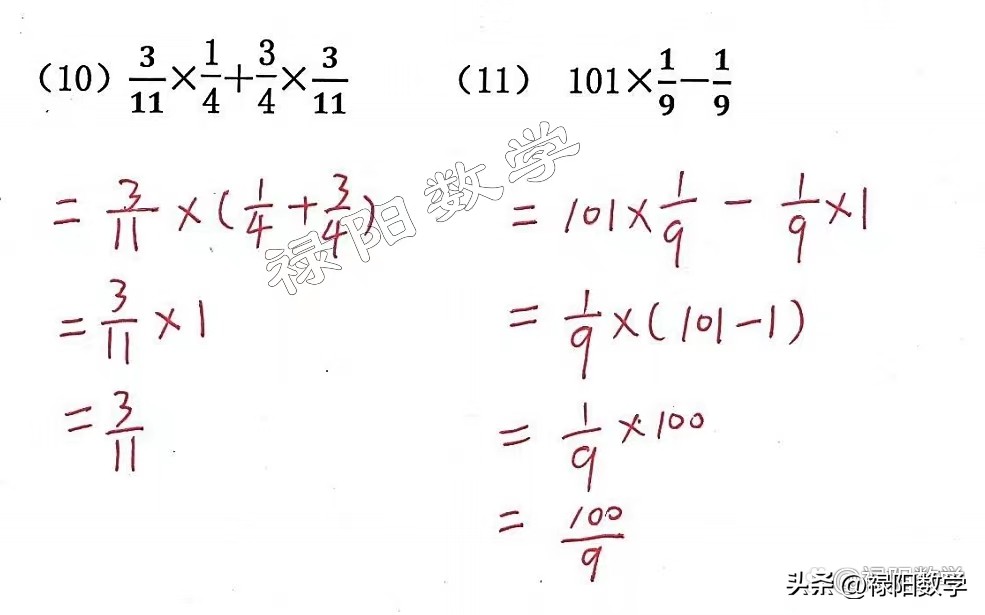 (10) 3/11×1/4+3/4×3/11
= 3/11 × (1/4 + 3/4)
= 3/11 × 1
= 3/11
(11) 101×1/9−1/9
= 101 × 1/9 − 1/9 × 1
= 1/9 × (101 − 1)
= 1/9 × 100
= 100/9
禄阳数学
头条 @禄阳数学